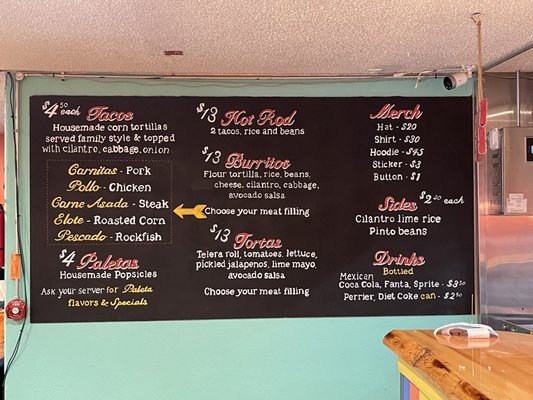 $4.50 each Tacos
Housemade corn tortillas
served family style & topped
with cilantro, cabbage, onion
Carnitas - Pork
Pollo - Chicken
Carne Asada - Steak
Elote - Roasted Corn
Pescado - Rockfish
$4 Paletas
Housemade Popsicles
Ask your server for Paleta
flavors & Specials
$13 Hot Rod
2 tacos, rice and beans
$13 Burritos
Flour tortilla, rice, beans,
cheese, cilantro, cabbage,
avocado salsa
Choose your meat filling
$13 Tortas
Telera roll, tomatoes, lettuce,
pickled jalapenos, lime mayo,
avocado salsa
Choose your meat filling
Merch
Hat - $20
Shirt - $30
Hoodie - $45
Sticker - $3
Button - $1
Sides $2.50 each
Cilantro lime rice
Pinto beans
Drinks
Bottled
Mexican
Coca Cola, Fanta, Sprite - $3.50
Perrier, Diet Coke can - $2.50